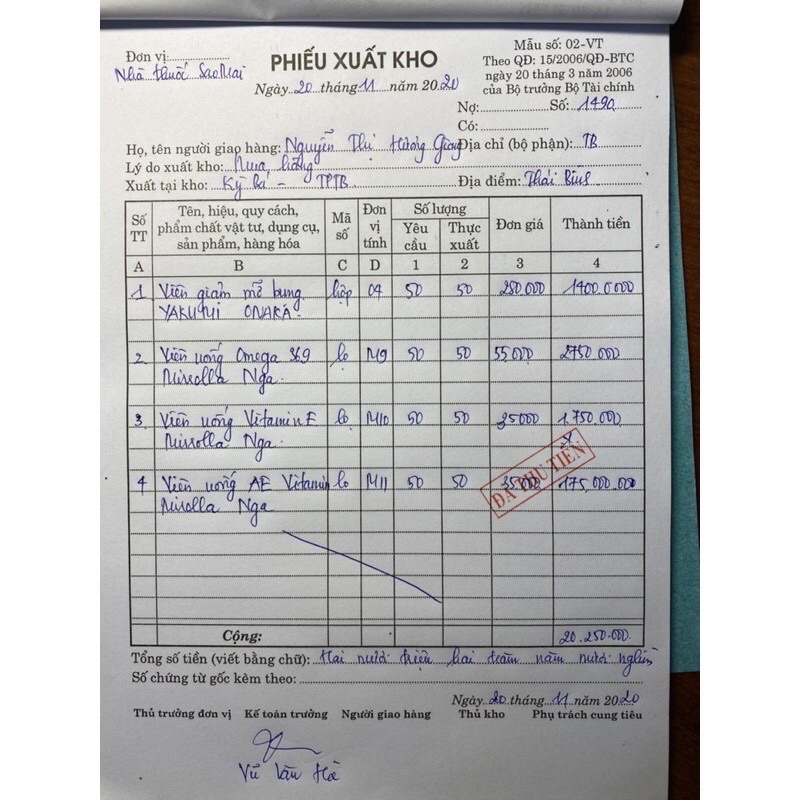 Đơn vị:
Nhà thuốc Sao Mai
PHIẾU XUẤT KHO
Ngày 20 tháng 11 năm 2020
Mẫu số: 02-VT
Theo QĐ: 15/2006/QĐ-BTC
ngày 20 tháng 3 năm 2006
của Bộ trưởng Bộ Tài chính
Nợ: Số: 1490
Có:
Họ, tên người giao hàng: Nguyễn Thị Hương Giang Địa chỉ (bộ phận): TB
Lý do xuất kho: Mua hàng
Xuất tại kho: Kỳ Bá - TPTB Địa điểm: Thái Bình
Số TT Tên, hiệu, quy cách, phẩm chất vật tư, dụng cụ, sản phẩm, hàng hóa Mã số Đơn vị tính Số lượng Yêu cầu Thực xuất Đơn giá Thành tiền
A B C D 1 2 3 4
1 Viên giảm mỡ bụng hộp 04 50 50 280.000 1400.0000
YAKUMI ONAKA
2 Viên uống Omega 369 lọ M9 50 50 55.000 2750.000
Mirrolla Nga
3 Viên uống Vitamin E lọ M10 50 50 35000 1.750.000
Mirrolla Nga
4 Viên uống AE Vitamin lọ M11 50 50 35000 175.000.000
Mirolla Nga
ĐÃ THU TIỀN
Cộng: 20.250.000
Tổng số tiền (viết bằng chữ): Hai mươi triệu hai trăm năm mươi nghìn
Số chứng từ gốc kèm theo:
Ngày 20 tháng 11 năm 2020
Thủ trưởng đơn vị Kế toán trưởng Người giao hàng Thủ kho Phụ trách cung tiêu
Vũ Văn Hà